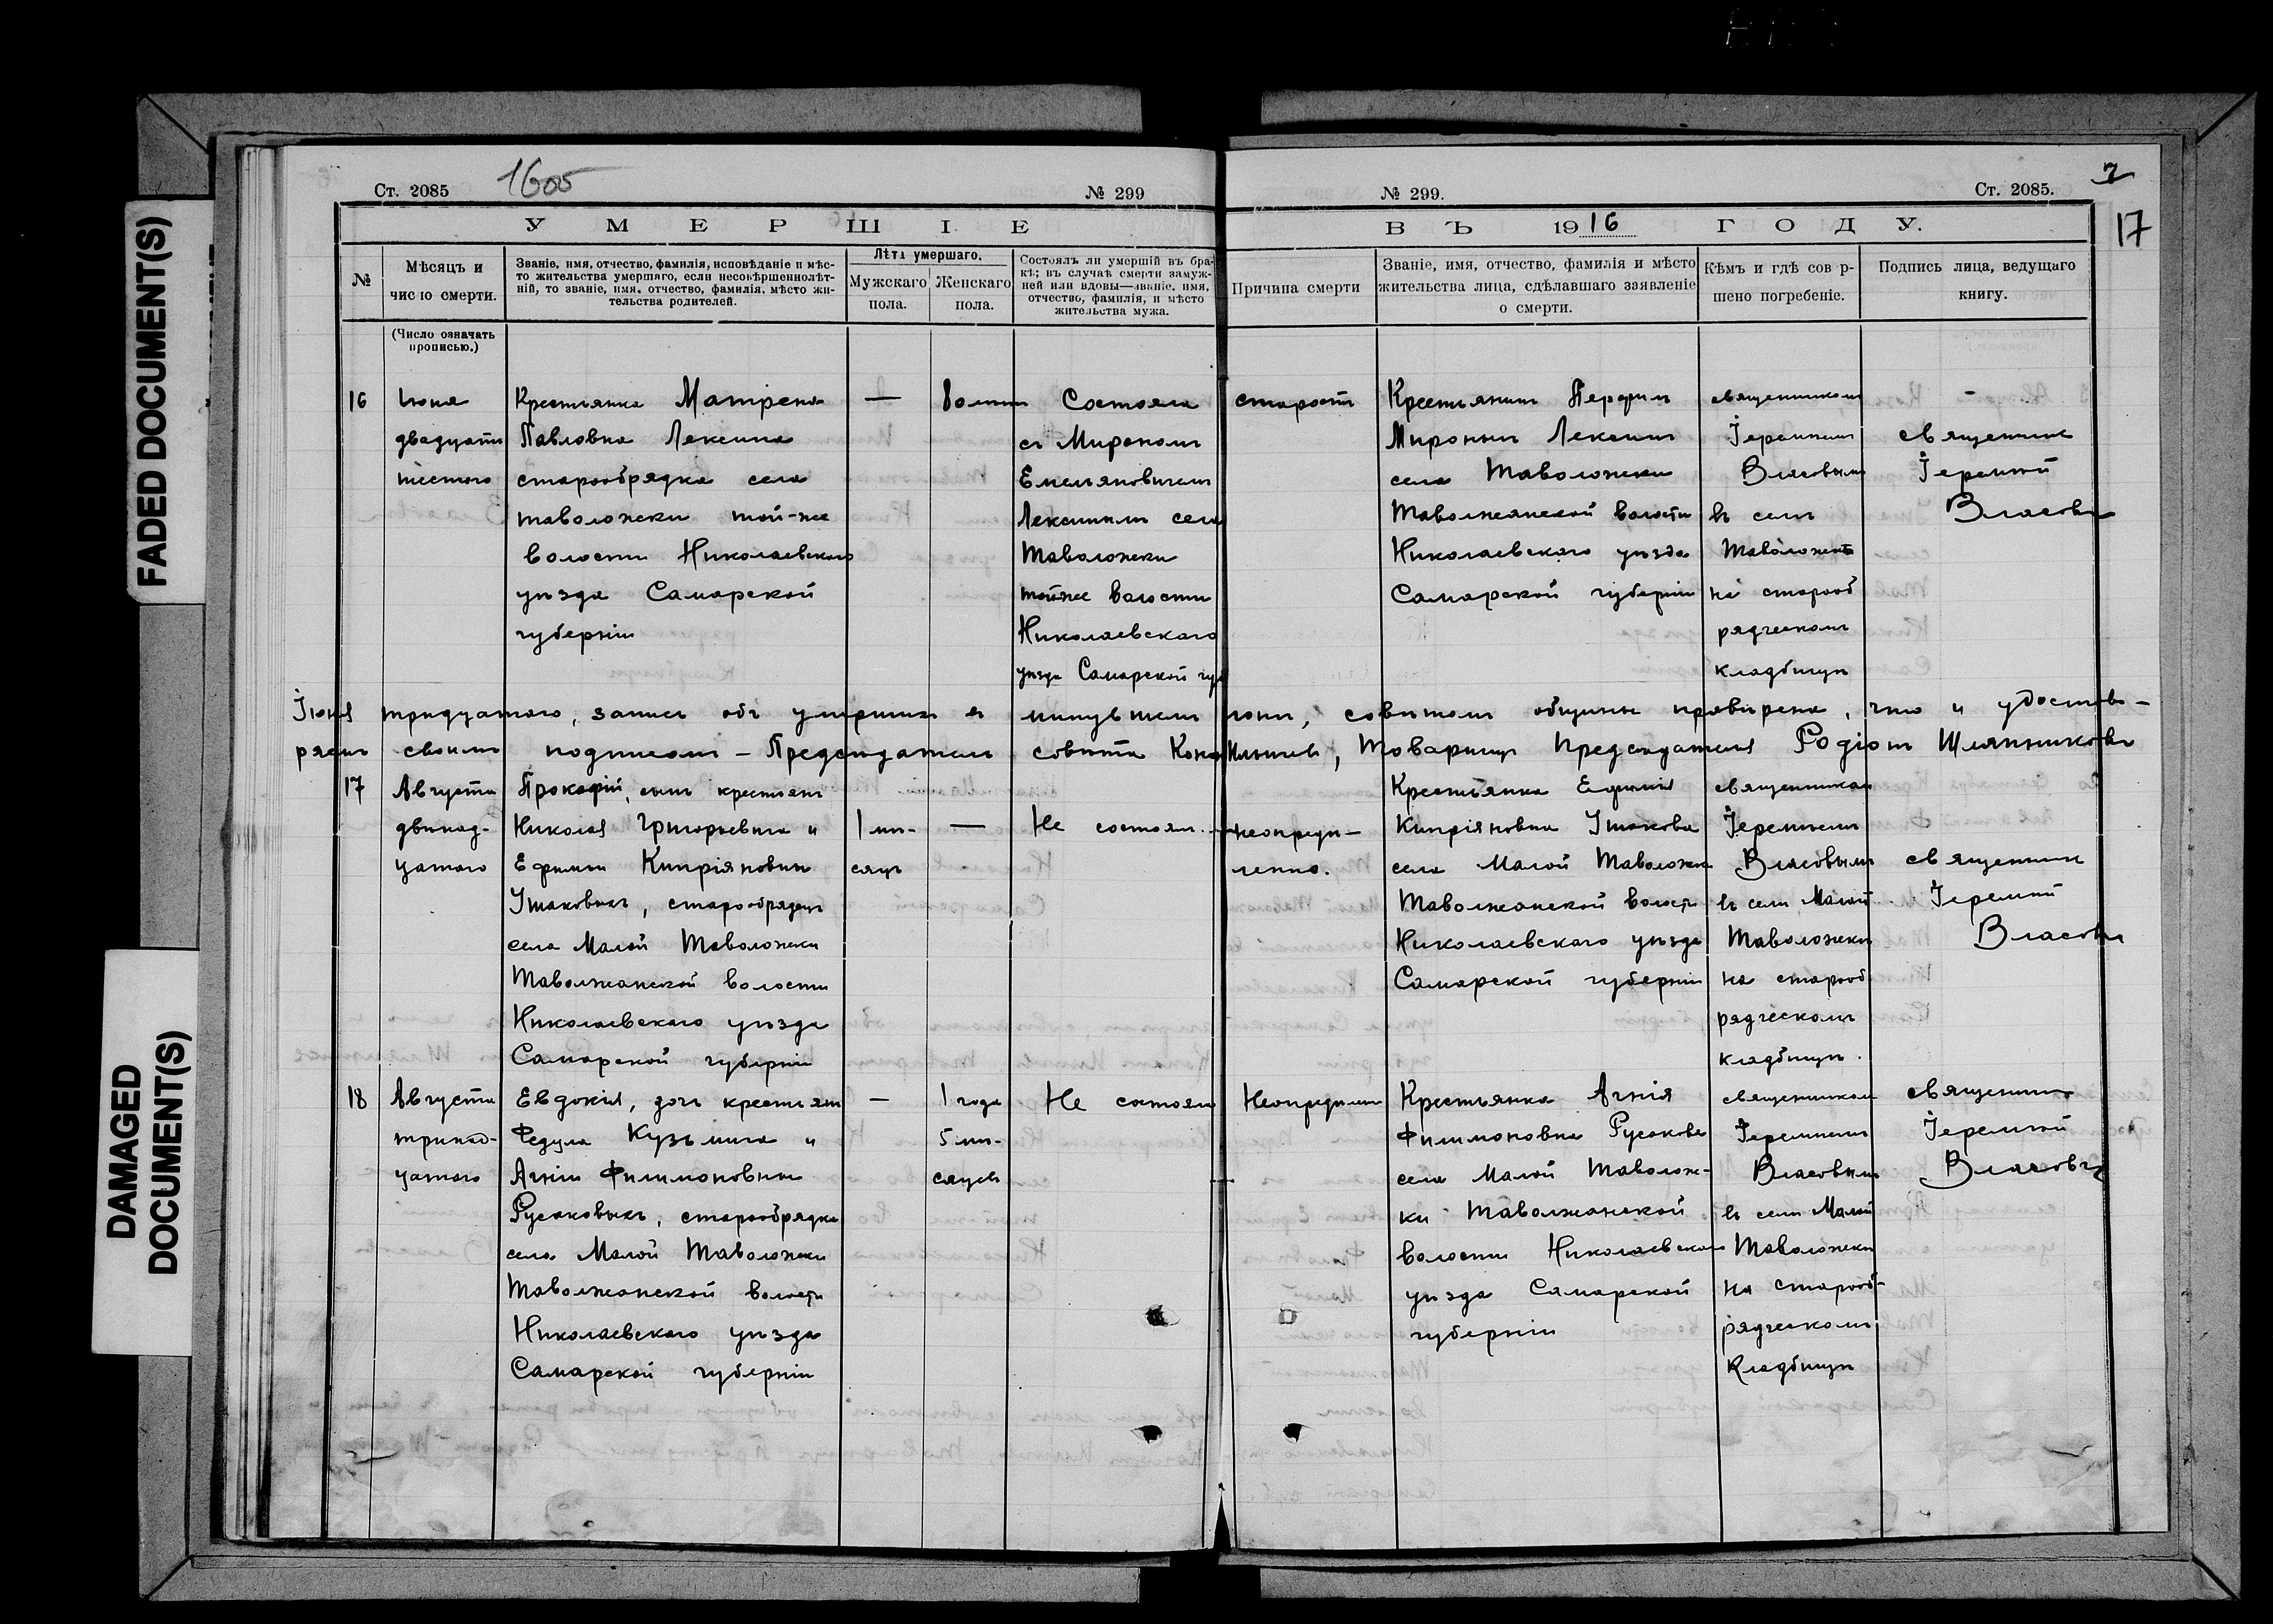 FADED DOCUMENT(S)
DAMAGED DOCUMENT(S)
Ст. 2085
1605
№ 299
№ 299.
Ст. 2085.
7
17
УМЕРШІЕ
ВЪ 1916 ГОДУ.
№
Мѣсяцъ и
число смерти.
(Число означать
прописью.)
Званіе, имя, отчество, фамилія, исповѣданіе и мѣс-
то жительства умершаго, если несовѣршеннолѣт-
ній, то званіе, имя, отчество, фамилія, мѣсто жи-
тельства родителей.
Лѣта умершаго.
Мужскаго
пола.
Женскаго
пола.
Состоялъ ли умершій въ бра-
кѣ; въ случаѣ смерти замуж-
ней или вдовы—званіе, имя,
отчество, фамилія, и мѣсто
жительства мужа.
Причина смерти
Званіе, имя, отчество, фамилія и мѣсто
жительства лица, сдѣлавшаго заявленіе
о смерти.
Кѣмъ и гдѣ сов р-
шено погребеніе.
Подпись лица, ведущаго
книгу.
16
Июня
двадцать
шестого
Крестьянка Матрена
Павловна Лексина
старообрядка села
Таволожки той-же
волости Николаевскаго
уѣзда Самарской
губерніи
—
Состояла
съ Мирономъ
Емельяновичемъ
Лексинымъ села
Таволожки
тойже волости
Николаевскаго
уѣзда Самарской губ
старость
Крестьянинъ Перфилъ
Миронычъ Лексинъ
села Таволожки
Таволжанской волости
Николаевскаго уѣзда
Самарской губерніи
священникомъ
Іереміемъ
Власовымъ
въ селѣ
Таволожкѣ
на старооб
рядческомъ
кладбищѣ
священникъ
Іеремій
Власовъ
Іюня тридцатого, запись объ умершихъ въ минувшемъ іюнѣ, совѣтомъ общины провѣрена, что и удостовѣ-
ряемъ своимъ подписомъ – Предсѣдатель совѣта Конон Ильичевъ, Товарищъ Предсѣдателя Родіонъ Шляпниковъ
17
Августа
двѣнад-
цатого
Прокофій, сынъ крестьянъ
Николая Григорьевича и
Ефиміи Кипріяновны
Ушаковыхъ, старообрядецъ
села Малой Таволожки
Таволжанской волости
Николаевскаго уѣзда
Самарской губерніи
1 мѣ-
сяцъ
—
Не состоял.
неопредѣ-
ленно.
Крестьянка Ефимія
Кипріяновна Ушакова
села Малой Таволожки
Таволжанской волости
Николаевскаго уѣзда
Самарской губерніи
священникомъ
Іереміемъ
Власовымъ
въ селѣ Малой
Таволожки
на старооб
рядческомъ
кладбищѣ.
священникъ
Іеремій
Власовъ
18
Августа
тринад-
цатого
Евдокія, дочь крестьянъ
Федула Кузьмича и
Агніи Филимоновны
Русаковыхъ, старообрядка
села Малой Таволожки
Таволжанской волости
Николаевскаго уѣзда
Самарской губерніи
—
1 года
5 мѣ-
сяцевъ
Не состояла
Неопредѣленно
Крестьянка Агнія
Филимоновна Русакова
села Малой Таволож-
ки Таволжанской
волости Николаевскаго
уѣзда Самарской
губерніи
священникомъ
Іереміемъ
Власовымъ
въ селѣ Малой
Таволожки
на старооб-
рядческомъ
кладбищѣ
священникъ
Іеремій
Власовъ